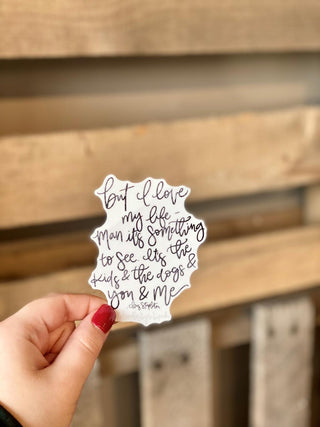 but I love
my life -
man it's something
to see. Its the
kids & the dogs &
you & me